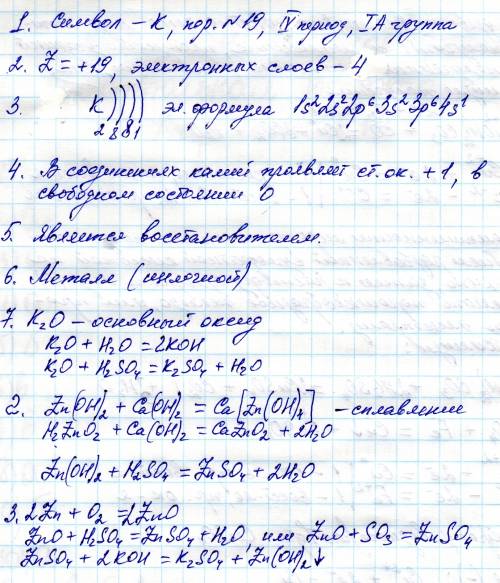 1. Символ – K, пор. №19, IV период, IA группа
2. Z = +19, электронных слоев – 4
3. K ) ) ) ) эл. формула 1s² 2s² 2p⁶ 3s² 3p⁶ 4s¹
2 8 8 1
4. В соединениях калий проявляет ст. ок. +1, в
свободном состоянии 0
5. Является восстановителем.
6. Металл (щелочной)
7. K₂O – основный оксид
K₂O + H₂O = 2KOH
K₂O + H₂SO₄ = K₂SO₄ + H₂O
2. Zn(OH)₂ + Ca(OH)₂ = Ca[Zn(OH)₄] – сплавление
H₂ZnO₂ + Ca(OH)₂ = CaZnO₂ + 2H₂O
Zn(OH)₂ + H₂SO₄ = ZnSO₄ + 2H₂O
3. 2Zn + O₂ = 2ZnO
ZnO + H₂SO₄ = ZnSO₄ + H₂O, или ZnO + SO₃ = ZnSO₄
ZnSO₄ + 2KOH = K₂SO₄ + Zn(OH)₂↓